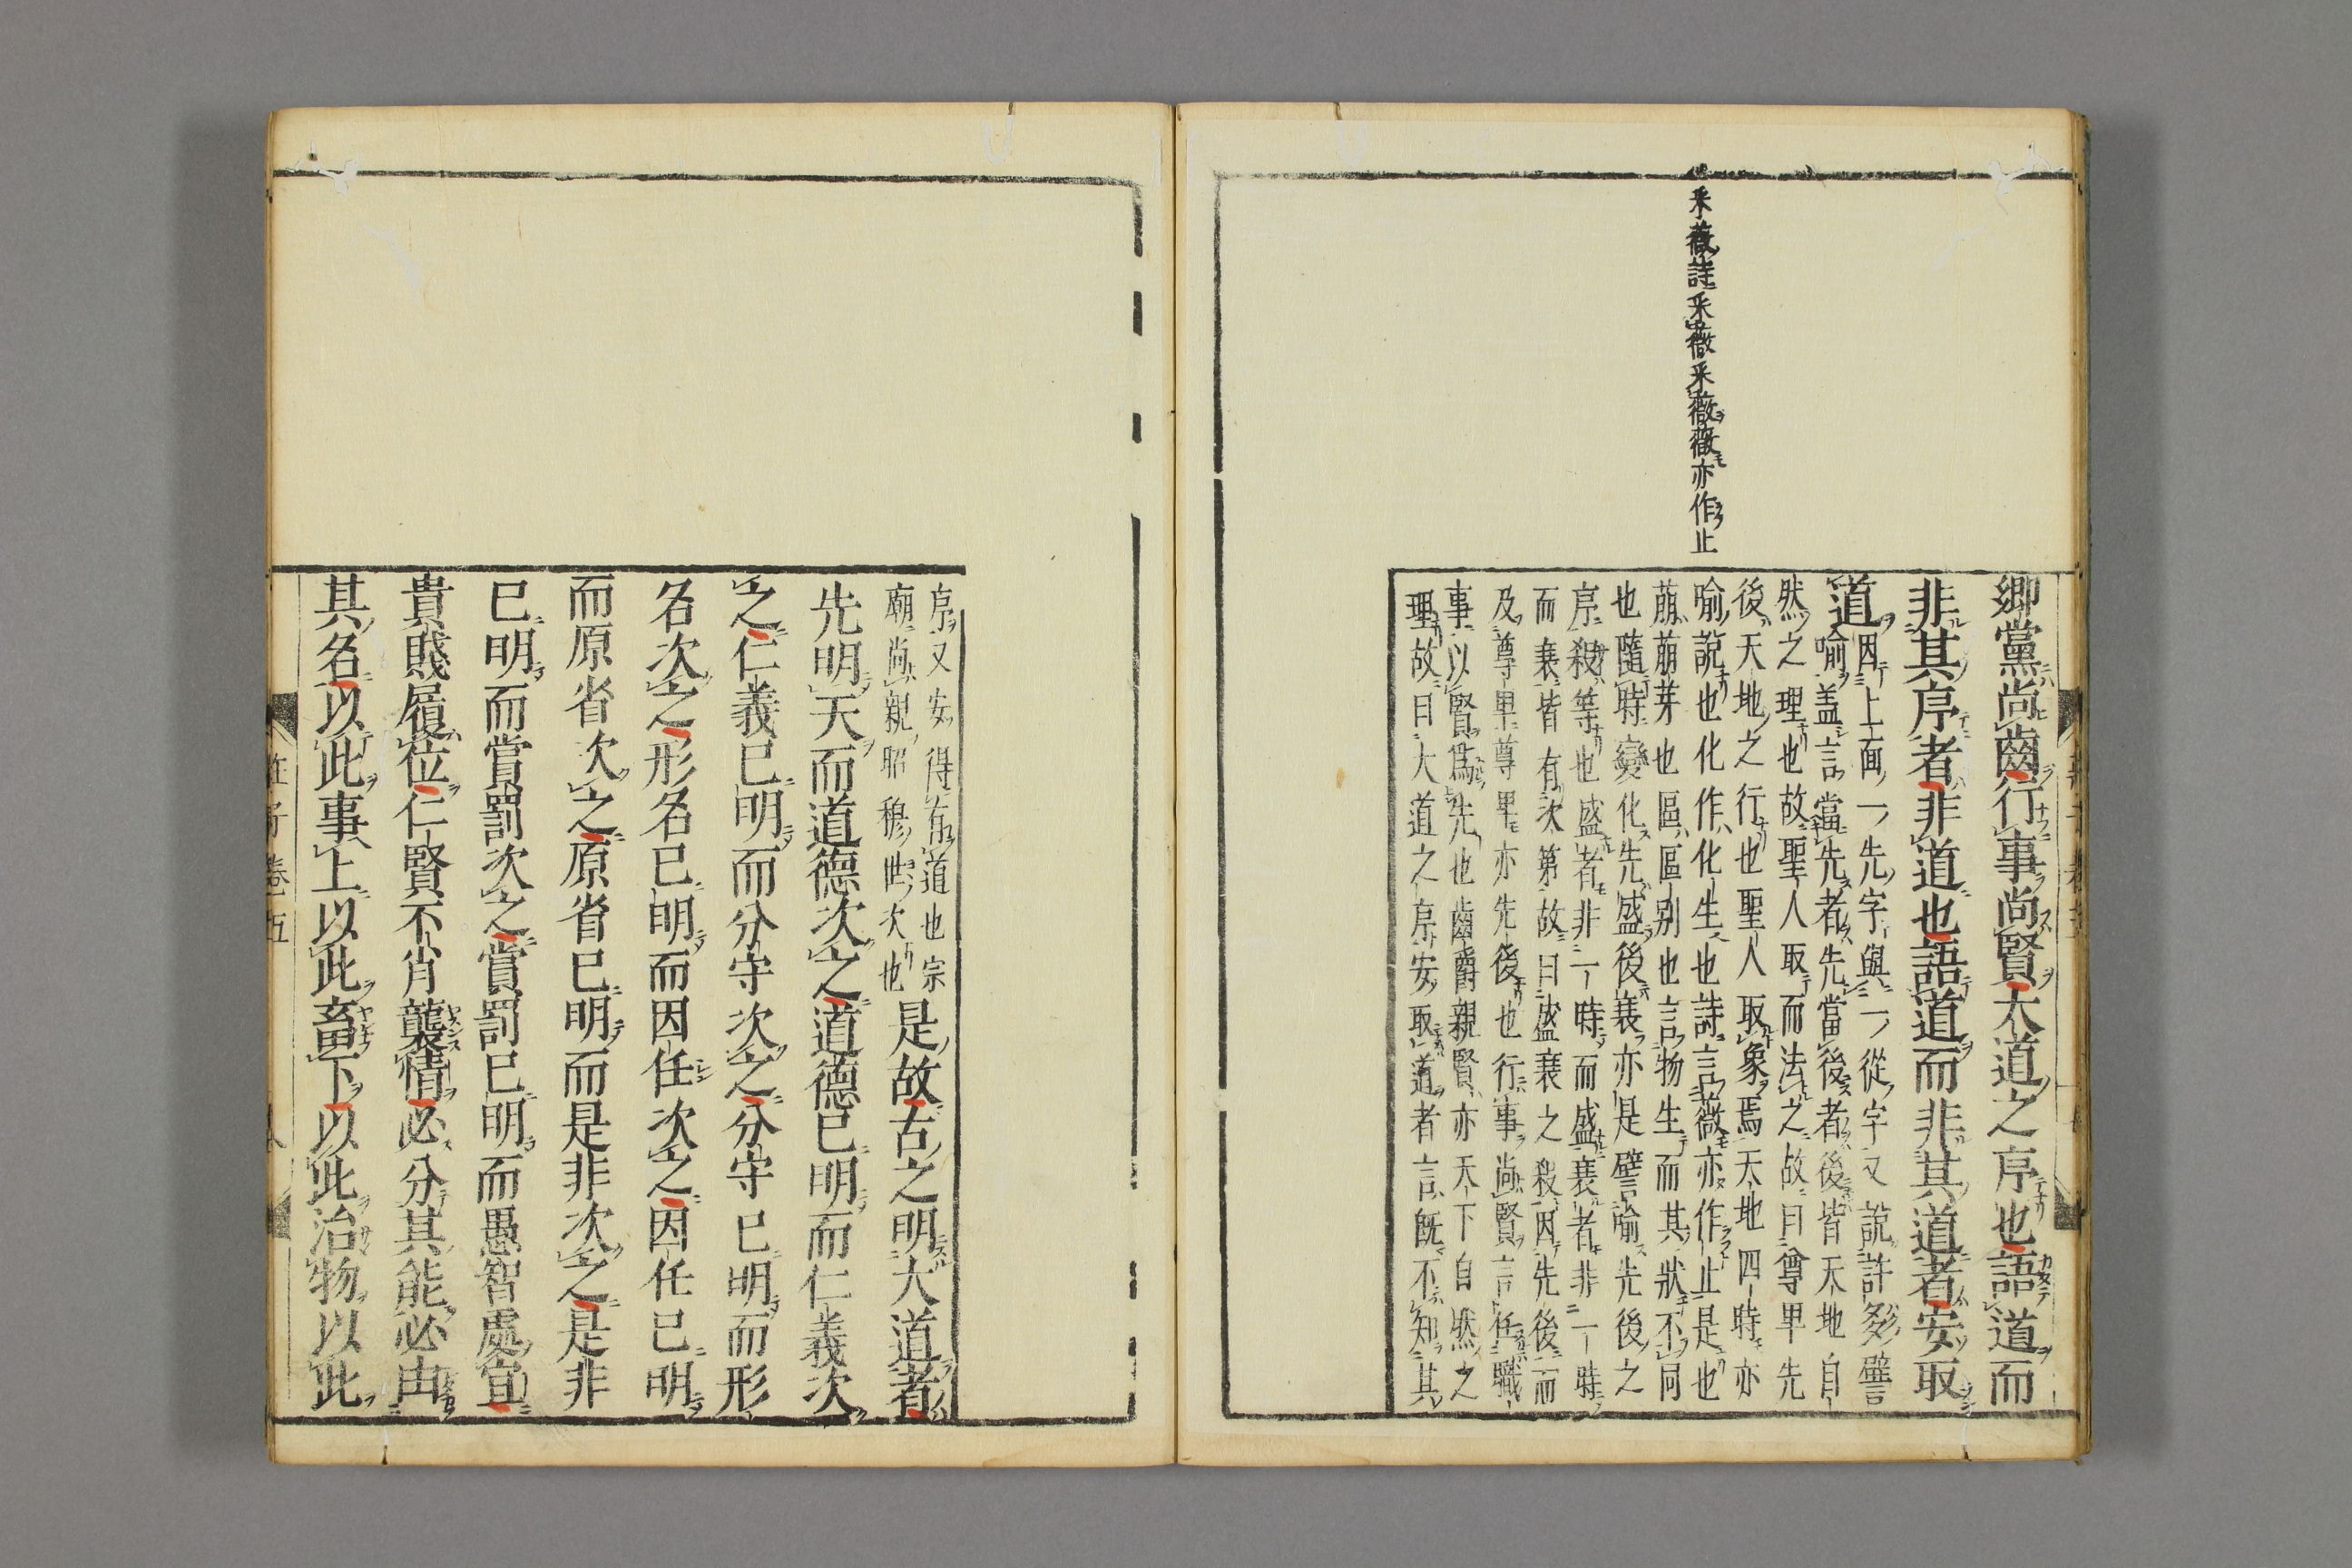 采薇詩采薇采薇薇亦作止
鄉黨尚齒行事尚賢大道之序也語道而
非其序者非道也語道而非其道者安取
道因上面一先字與一從字又說許多譬
喻盖言當先者先當後者後皆天地自
然之理也故聖人取而法之故曰尊卑先
後天地之行也聖人取象焉天地四時亦
喻說也化作化生也詩言薇亦作止是也
萠萠芽也區區别也言物生而其狀不同
也隨時變化先盛後衰亦是譬喻先後之
序殺等也盛者非一時而盛衰者非一時
而衰皆有次第故曰盛衰之殺因先後而
及尊卑尊卑亦先後也行事尚賢言任職
事以賢爲先也齒爵親賢亦天下自然之
理故曰大道之序安取道者言既不知其
序又安得有道也宗
廟尚親昭穆世次也是故古之明大道者
先明天而道德次之道德已明而仁義次
之仁義已明而分守次之分守已明而形
名次之形名已明而因任次之因任已明
而原省次之原省已明而是非次之是非
已明而賞罰次之賞罰已明而愚智處宜
貴賤履位仁賢不肖襲情必分其能必由
其名以此事上以此畜下以此治物以此
莊子卷五